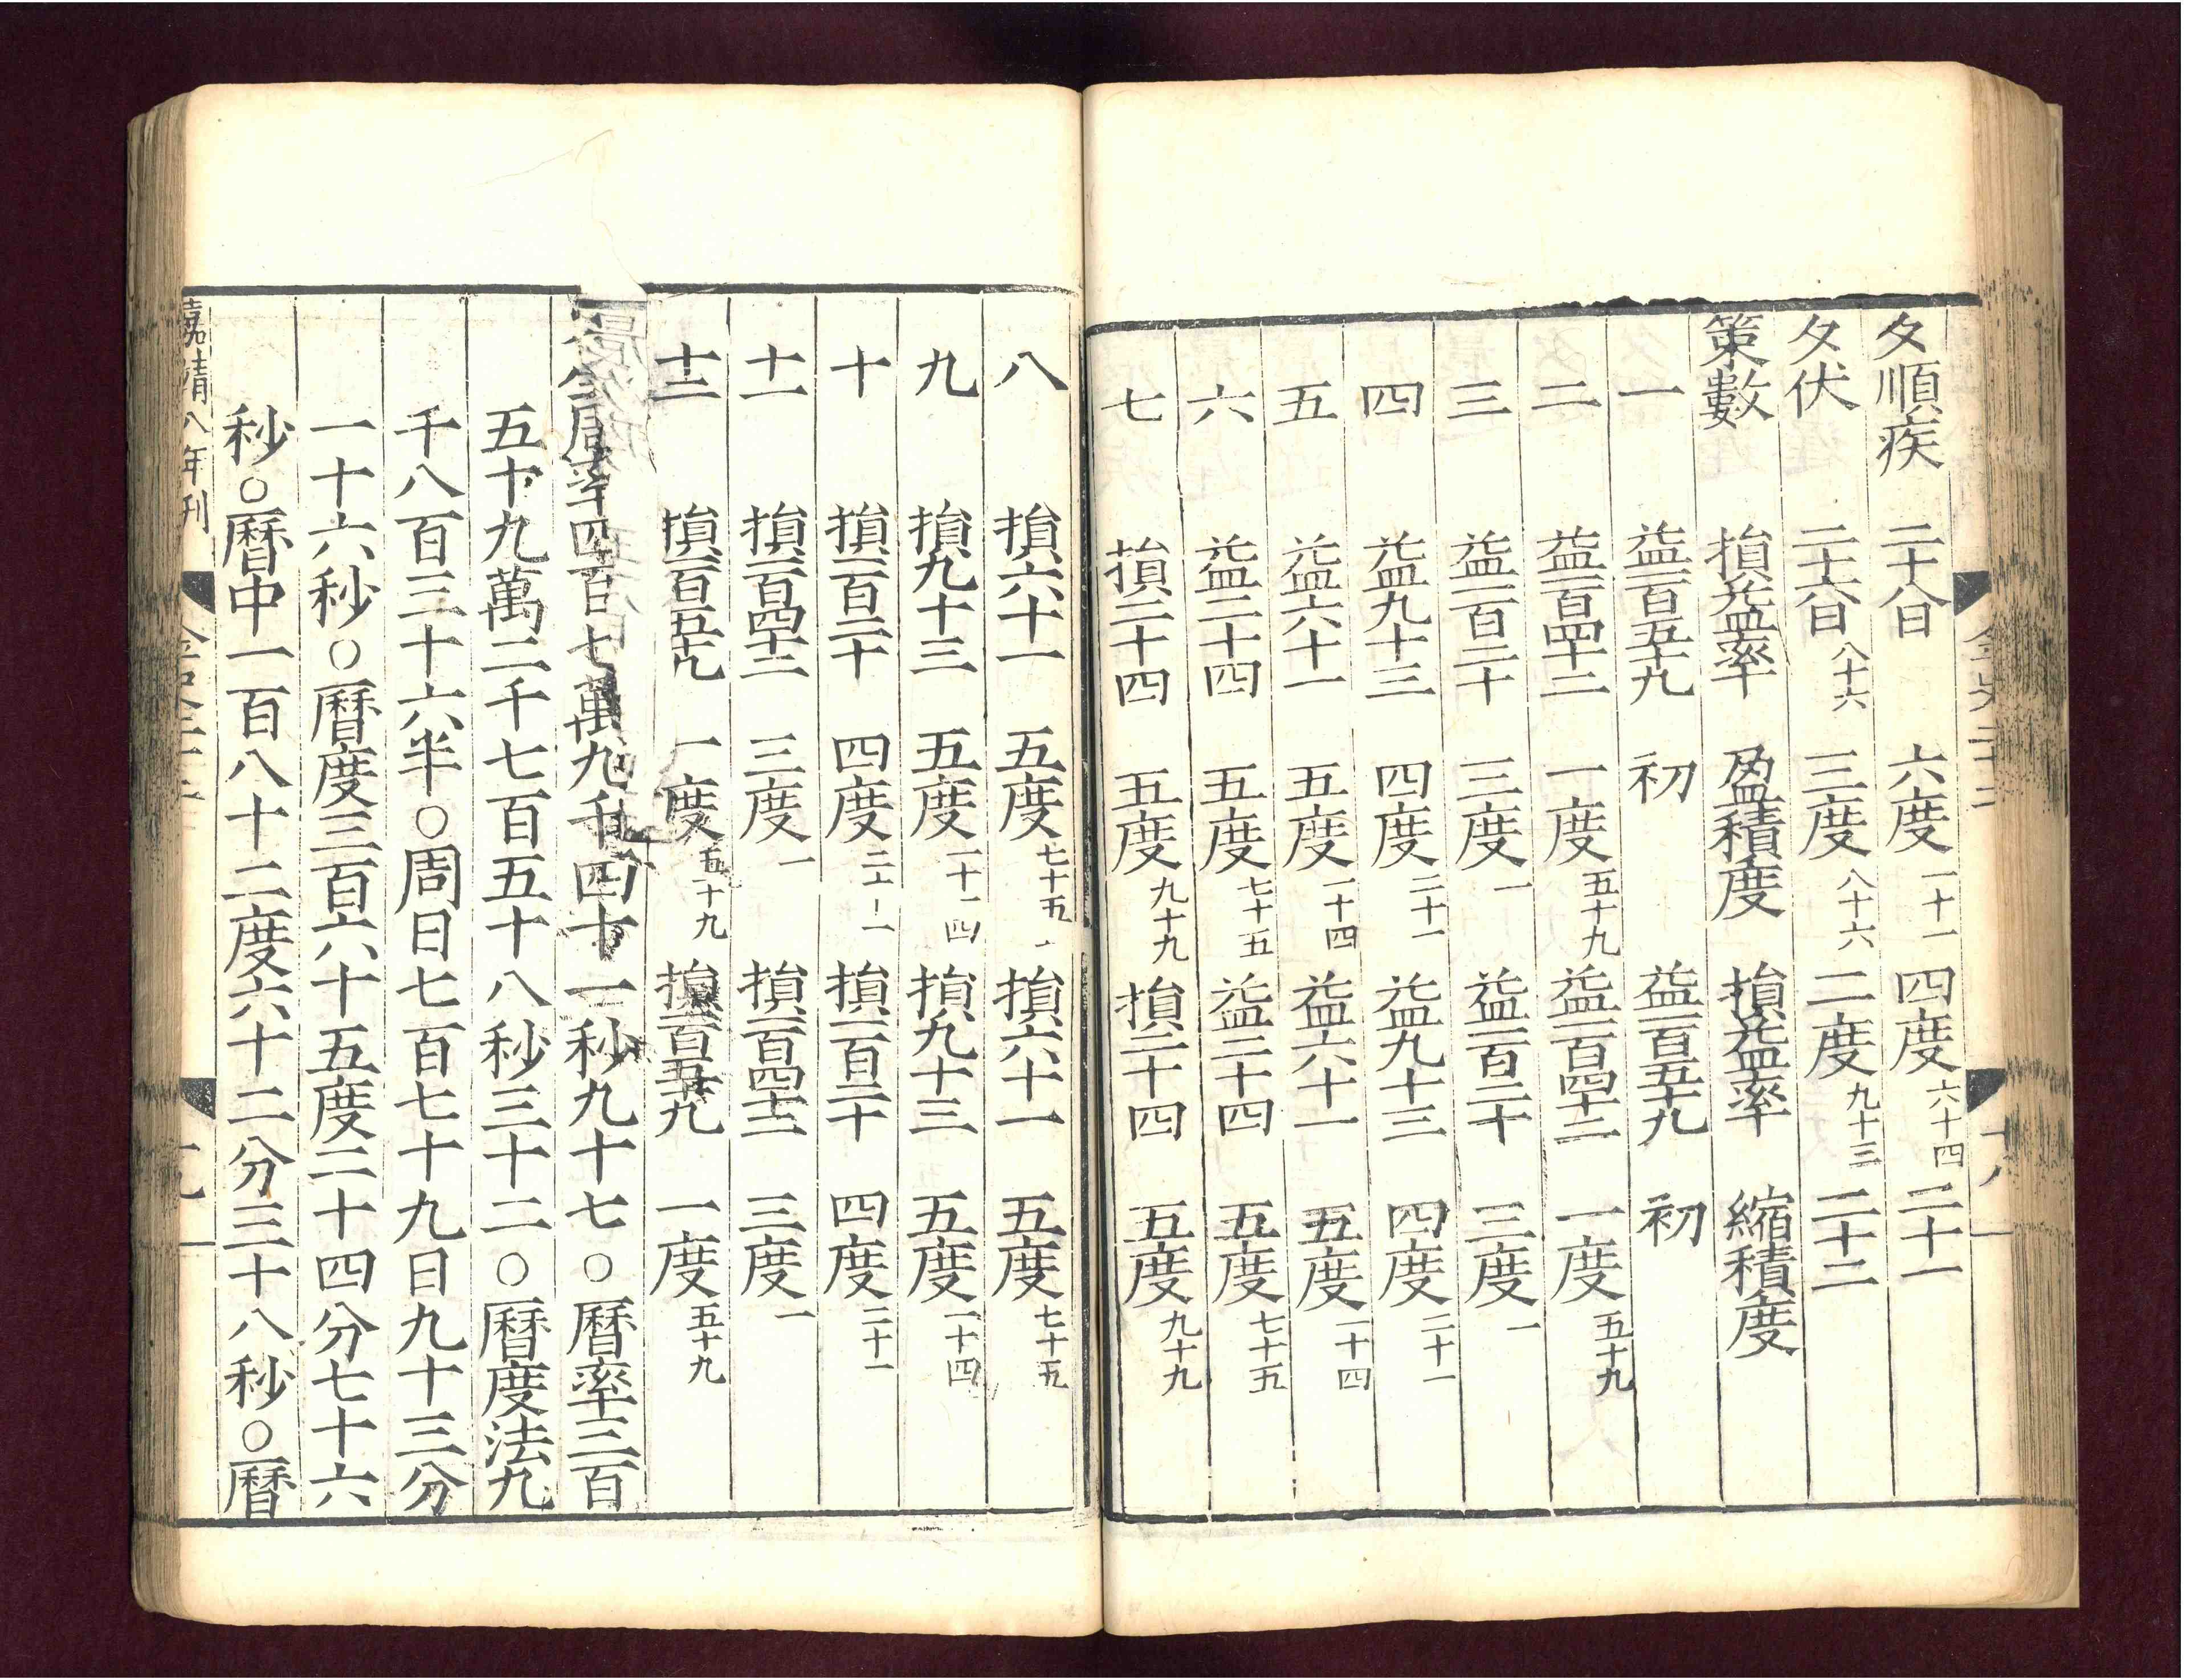 夕順疾 二十八日 六度一十一 四度六十四 二十一
夕伏 二十六日八十六 三度八十六 二度九十三 二十二
策數 損益率 盈積度 損益率 縮積度
一 益一百五十九 初 益一百五十九 初
二 益一百四十二 一度五十九 益一百四十二 一度五十九
三 益一百二十 三度一 益一百二十 三度一
四 益九十三 四度二十一 益九十三 四度二十一
五 益六十一 五度一十四 益六十一 五度一十四
六 益二十四 五度七十五 益二十四 五度七十五
七 損二十四 五度九十九 損二十四 五度九十九
八 損六十一 五度七十五 損六十一 五度七十五
九 損九十三 五度一十四 損九十三 五度一十四
十 損一百二十 四度二十一 損一百二十 四度二十一
十一 損一百四十二 三度一 損一百四十二 三度一
十二 損一百五十九 一度五十九 損一百五十九 一度五十九
周率四百七萬九千四十一秒九十七○曆率三百
五十九萬二千七百五十八秒三十二○曆度法九
千八百三十六半○周日七百七十九日九十三分
一十六秒○曆度三百六十五度二十四分七十六
秒○曆中一百八十二度六十二分三十八秒○曆
嘉靖八年刊